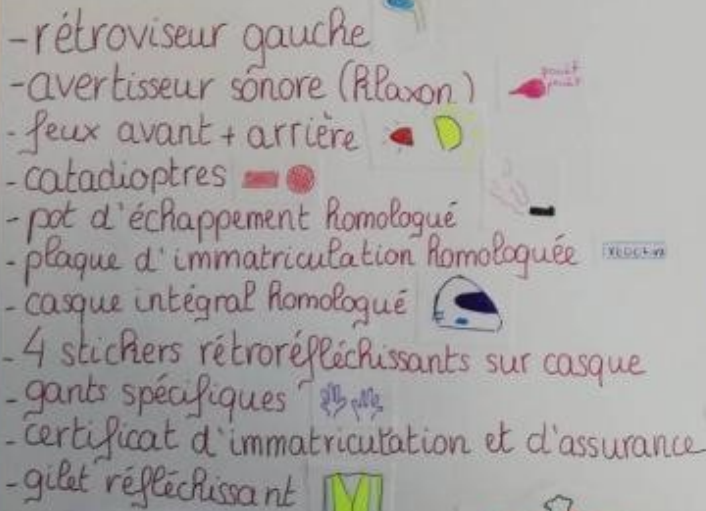 -rétroviseur gauche
-avertisseur sonore (Klaxon)
pouêt
pouêt
-feux avant + arrière
-catadioptres
-pot d'échappement homologué
-plaque d'immatriculation homologuée
-casque intégral homologué
-4 stickers rétroréfléchissants sur casque
-gants spécifiques
-certificat d'immatriculation et d'assurance
-gilet réfléchissant